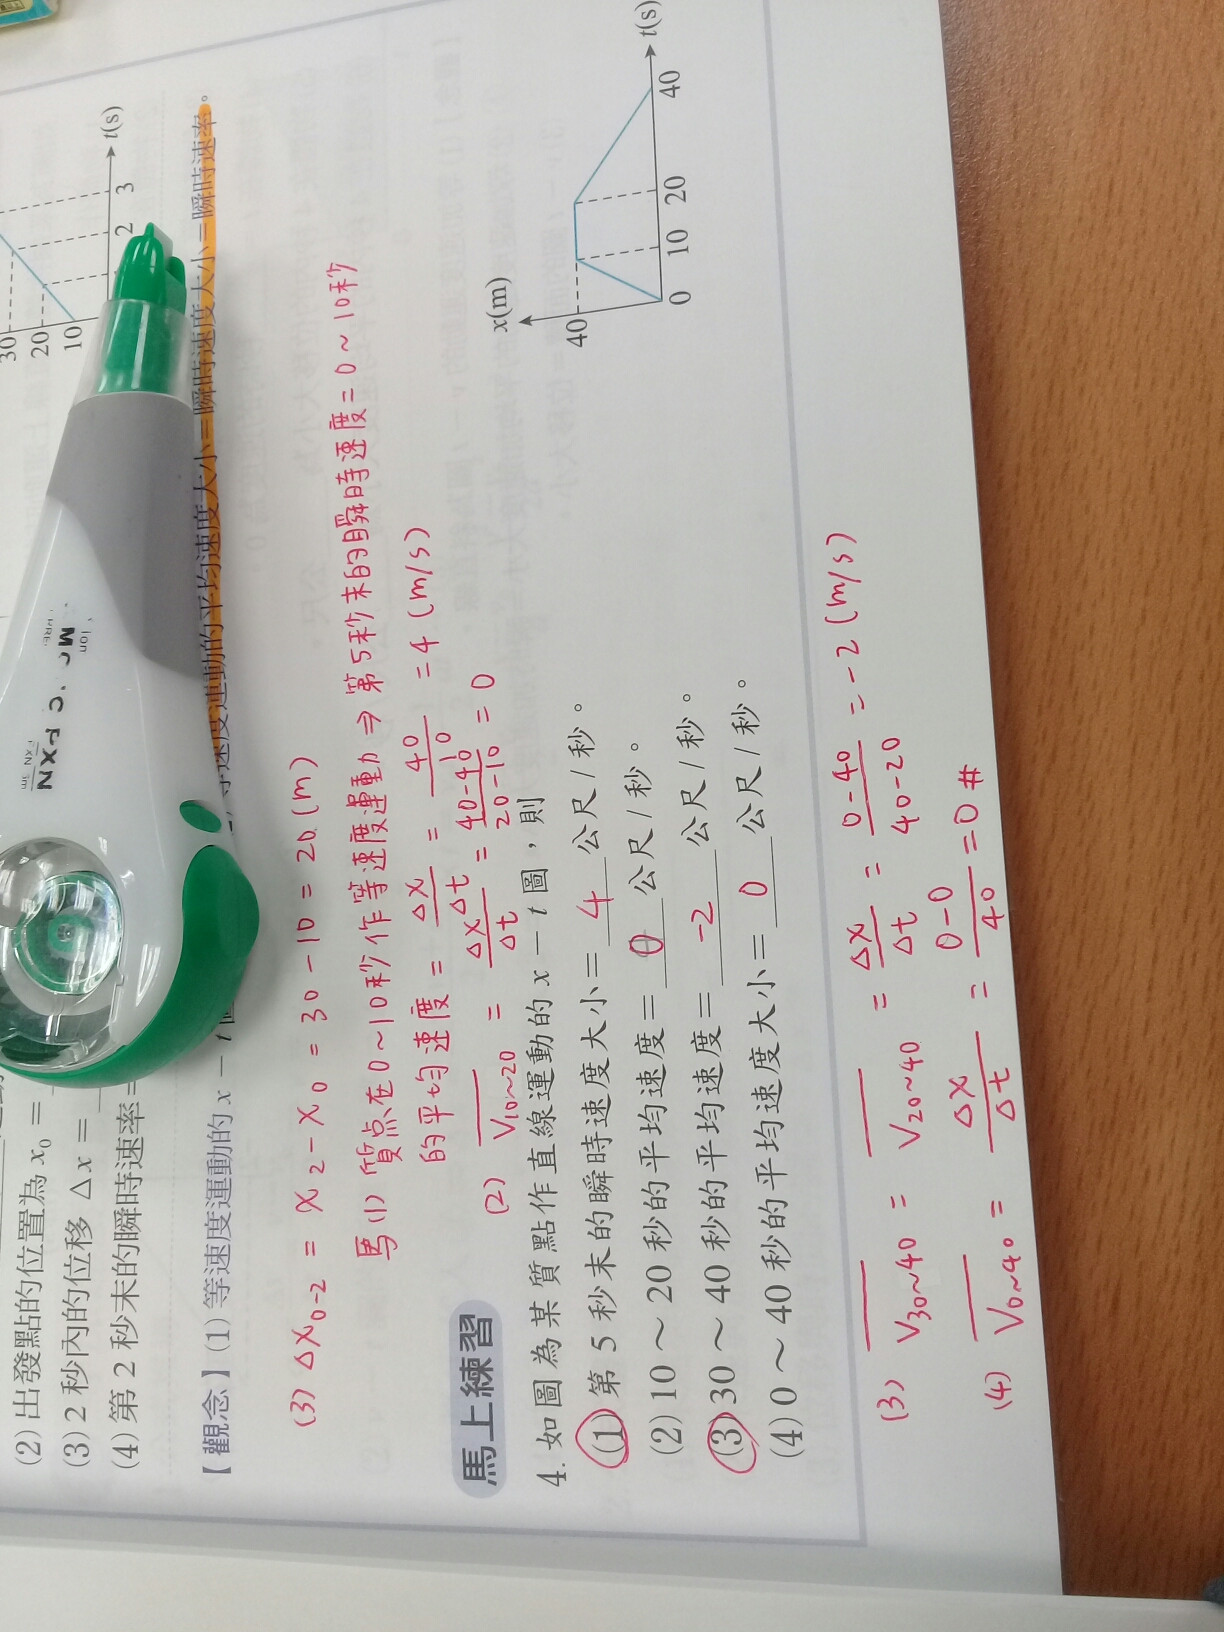 30
20
10
2
3
t(s)
(2)出發點的位置為 x₀ =
(3) 2 秒內的位移 Δx =
(4)第 2 秒末的瞬時速率 =
【觀念】(1)等速度運動的 x－t
等速度運動的平均速度大小＝瞬時速度大小＝瞬時速率。
(3) Δx₀₋₂ = x₂ - x₀ = 30 - 10 = 20 (m)
馬(1) 質点在0~10秒作等速度運動 ⇒ 第5秒末的瞬時速度 = 0~10秒
的平均速度 = Δx/Δt = 40/10 = 4 (m/s)
(2) V₁₀~₂₀ = Δx/Δt = 40-40/20-10 = 0
馬上練習
4. 如圖為某質點作直線運動的 x－t 圖，則
(1)第 5 秒末的瞬時速度大小＝ 4 公尺/秒。
(2) 10～20 秒的平均速度＝ 0 公尺/秒。
(3) 30～40 秒的平均速度＝ -2 公尺/秒。
(4) 0～40 秒的平均速度大小＝ 0 公尺/秒。
x(m)
40
0
10
20
40
t(s)
(3) V₃₀~₄₀ = V₂₀~₄₀ = Δx/Δt = 0-40/40-20 = -2 (m/s)
(4) V₀~₄₀ = Δx/Δt = 0-0/40 = 0 #